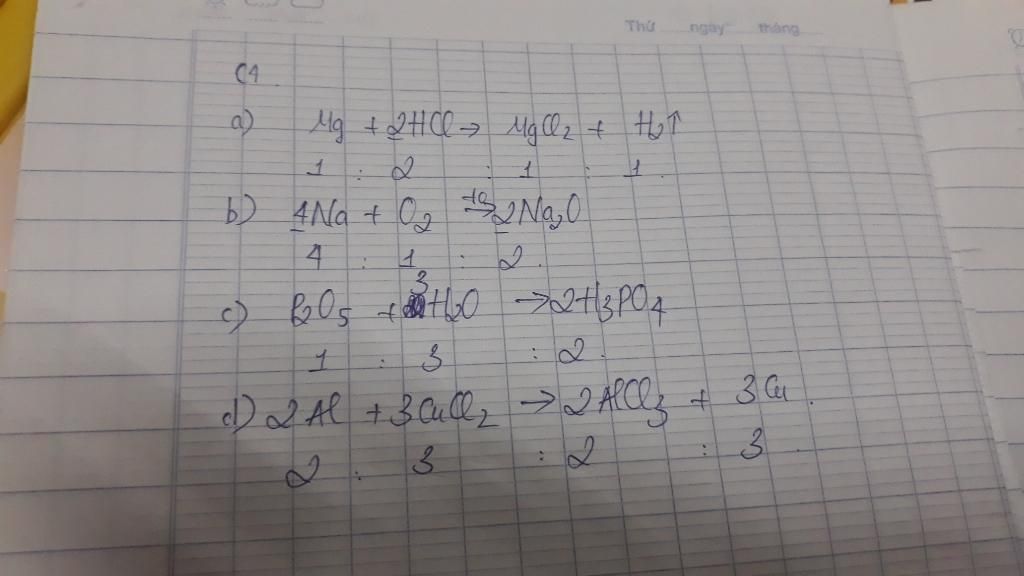 Thứ ngày tháng
C1
a) Mg + 2HCl → MgCl₂ + H₂↑
1 : 2 : 1 : 1
b) 4Na + O₂ →t° 2Na₂O
4 : 1 : 2.
c) P₂O₅ + 3H₂O → 2H₃PO₄
1 : 3 : 2.
d) 2Al + 3CuCl₂ → 2AlCl₃ + 3Cu.
2 : 3 : 2 : 3.